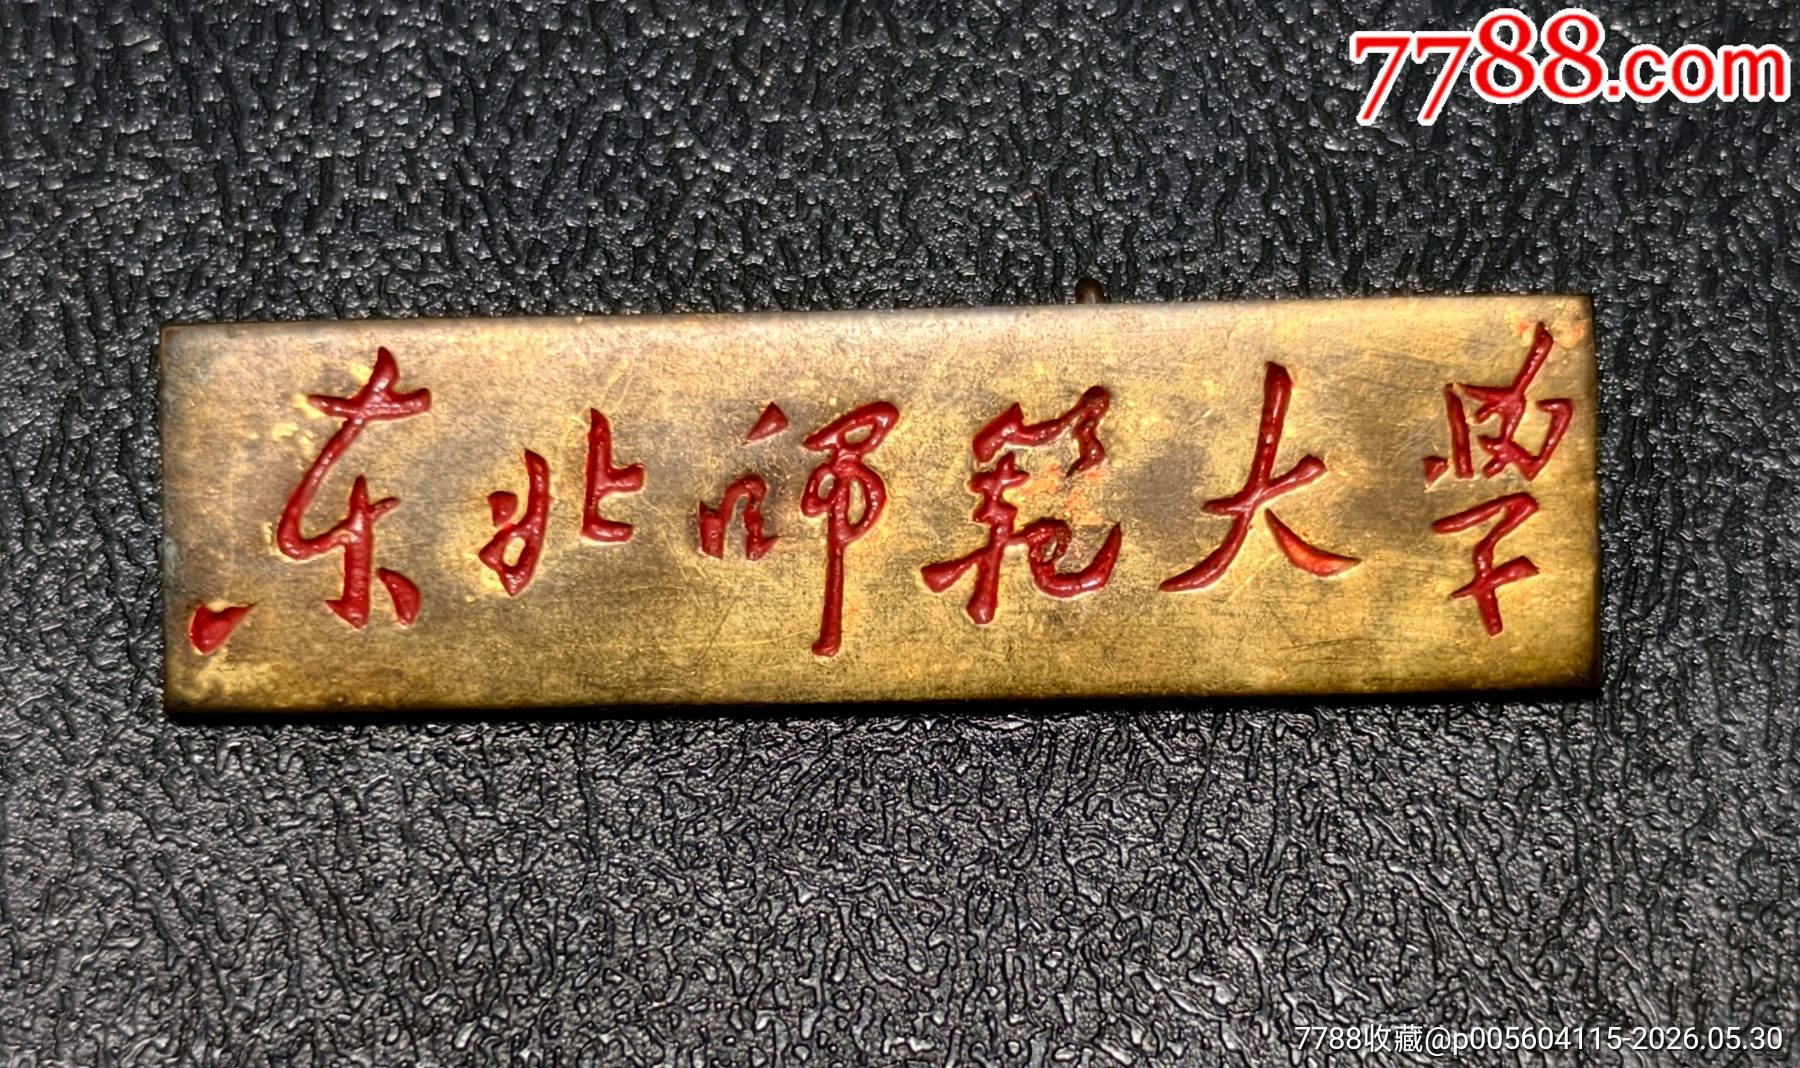 7788.com
东北师範大学
7788收藏@p005604115-2026.05.30